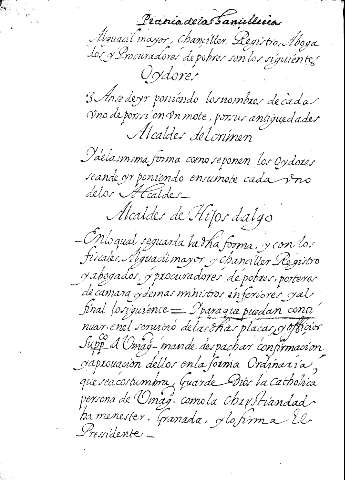 Practica de la Chancilleria
Alguacil mayor, Chanciller, Registro, Aboga
dos, y Procuradores de pobres son los siguientes
Oydores
Y Anse de yr poniendo los nombres de cada
vno de por si on vn mote, por sus antiguedades
Alcaldes del crimen
Y de la misma forma como se ponen los Oydores
se an de yr poniendo en su mote cada vno
de los Alcaldes
Alcaldes de Hijos dalgo
En lo qual seguarda la dha forma, y con los
fiscales, Alguacil mayor, y Chanciller, Registro
y abogados, y procuradores de pobres, porteros
de camara, y demas ministros inferiores, y al
final lo siguiente = Y para que puedan conti
nuar, en el servicio de las dhas plazas, y officios
Suppco A V Magd mande despachar confirmacion
y aprovacion dellos en la forma Ordinaria,
que se acostumbra, Guarde Dios la Catholica
persona de V Magd. como la Chrystiandad
ha menester. Granada, y lo firma El
Presidente